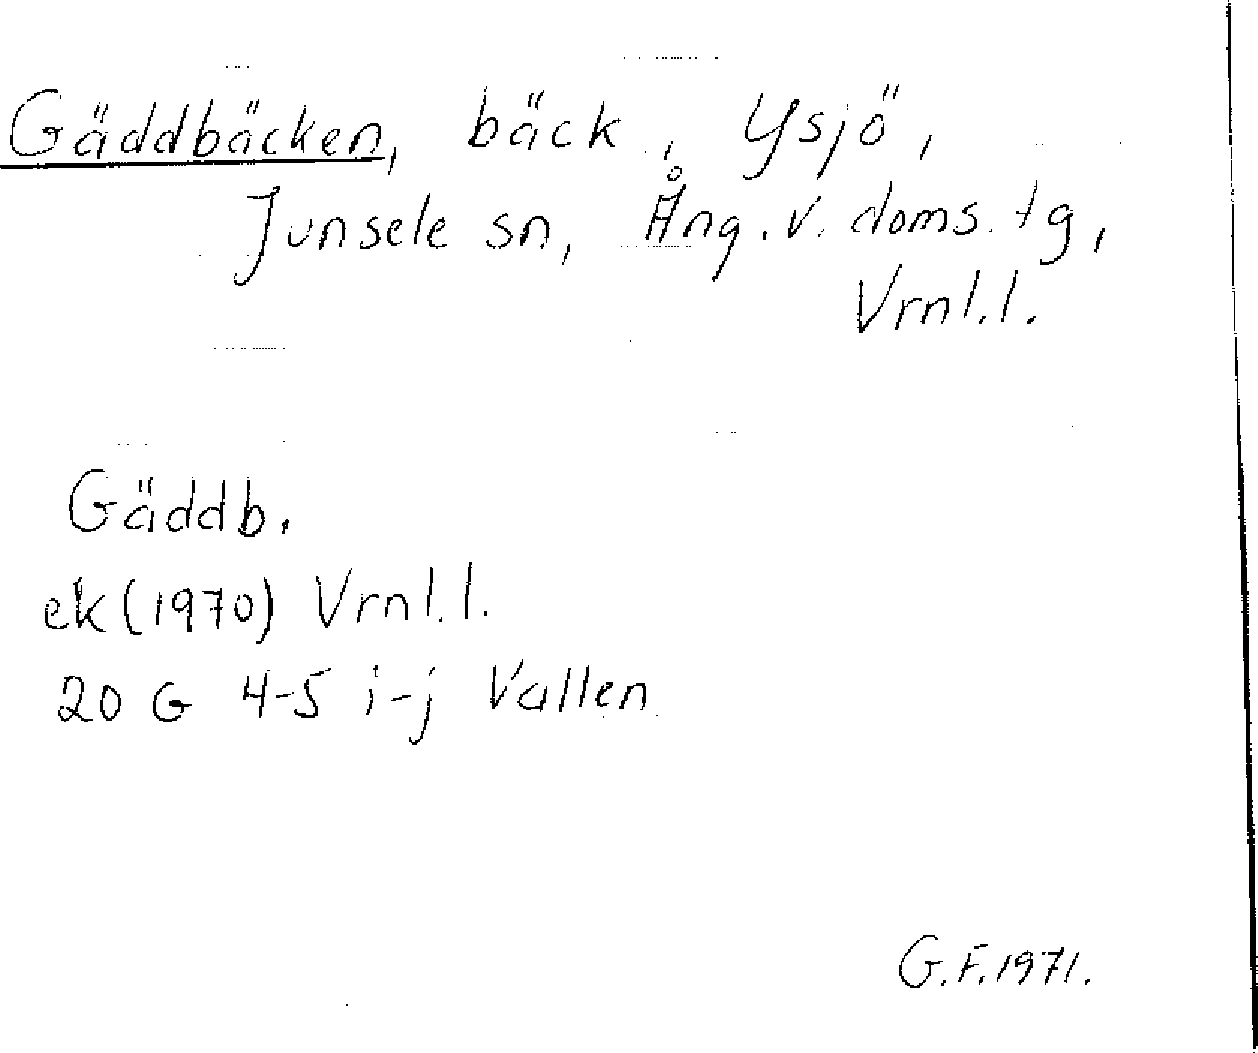 Gäddbäcken, bäck, Ysjö,
Junsele sn, Ång. v. doms. tg,
Vrnl.l.
Gäddb.
ek (1970) Vrnl.l.
20 G 4-5 i-j Vallen
G.F. 1971.